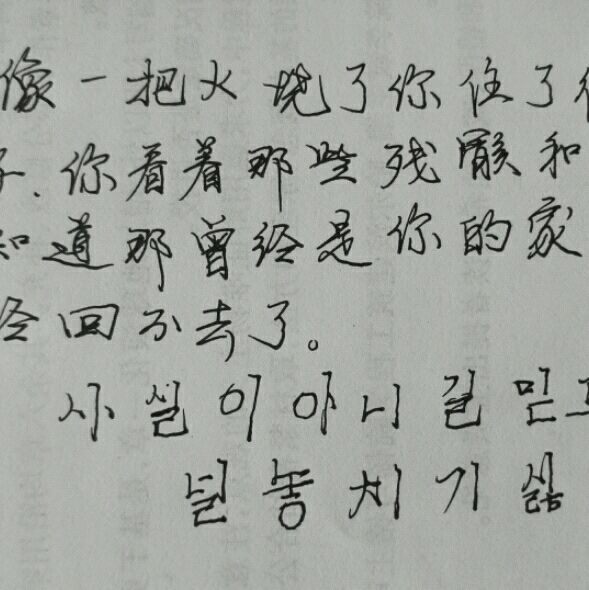 像一把火烧了你住了很
子.你看着那些残骸和
知道那曾经是你的家
经回不去了。
사실이아니길믿고
널놓치기싫